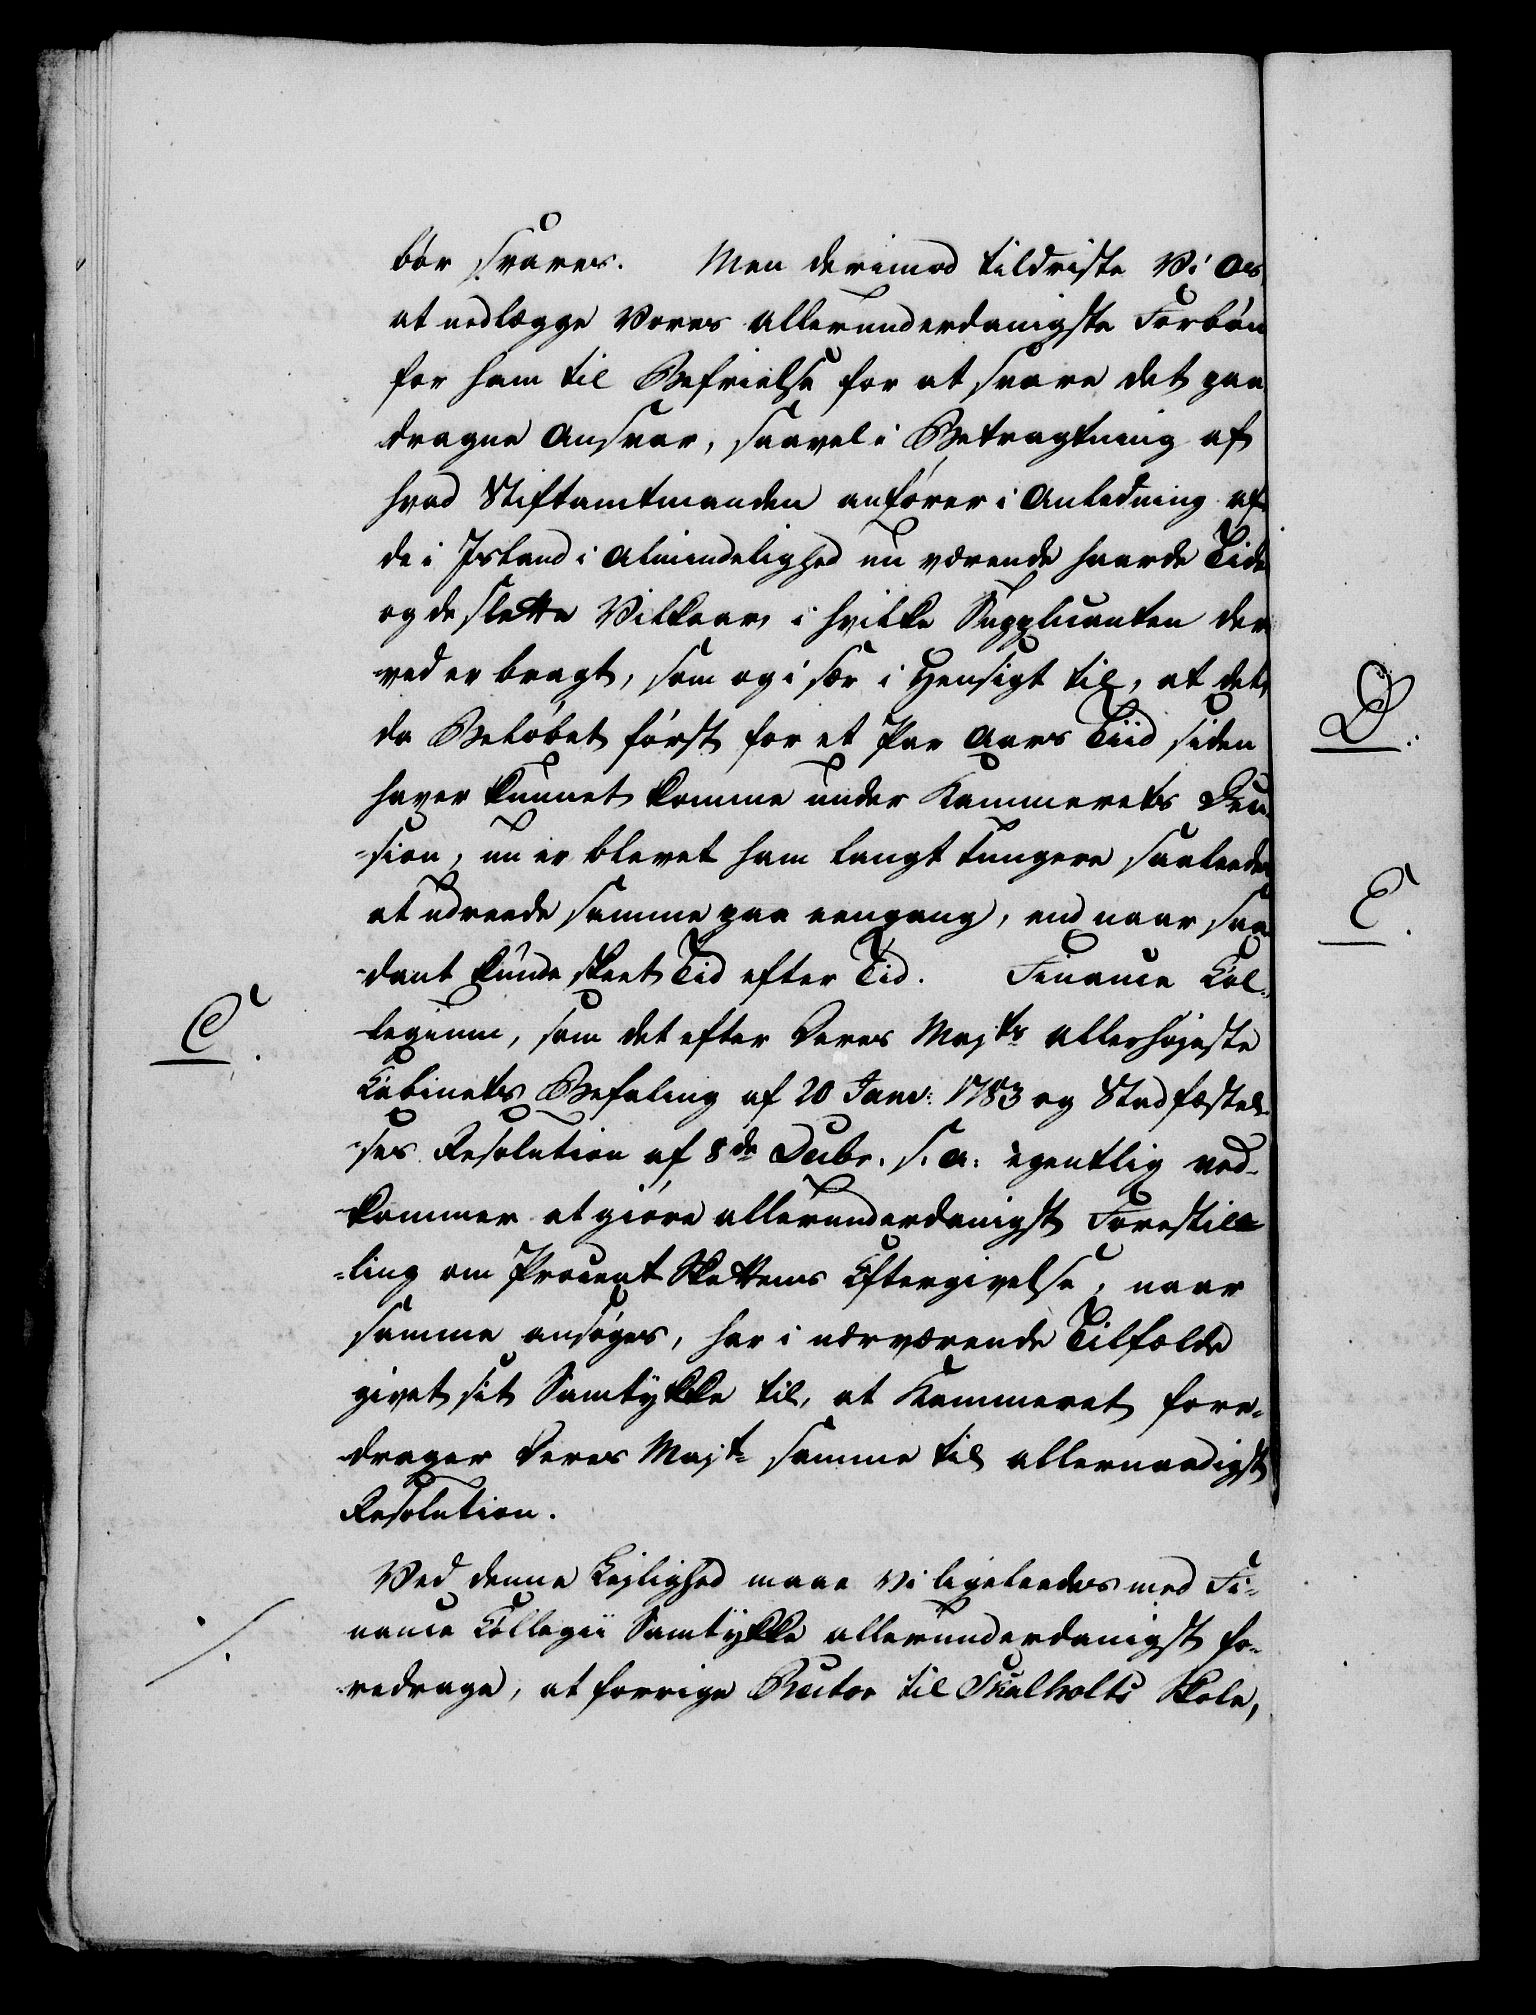 bör svares. Men derimod tildriste Vi Os,
at nedlægge Vores allerunderdanigste Forbön
for ham til Befrielse for at svare det paa
dragne Ansvar, saavel i Betragtning af
hvad Stiftamtmanden anfører i Anledning af
de i Island i Almindelighed nu værende haarde Tide
og de slette Vilkaar, i hvilke Supplicanten der
ved er bragt, som og i sær i Hensigt til, at det,
da Beløbet först for et Par Aars Tiid siden
haver kunnet komme under Kammerets Deci
-sion, nu er blevet ham langt tungere saaleedes
at udreede samme paa eengang, end naar saa
-dant kunde skeet Tid efter Tid. Finance Col-
legium, som det efter Deres Majts allerhøjeste
Cabinets Befaling af 20 Janv: 1783 og Stadfæstel-
-ses Resolution af 8de Decbr. s. a: egentlig ved-
kommer at giøre allerunderdanigst Forestill-
-ling om Procent Skattens Eftergivelse, naar
samme ansøges, har i nærværende Tilfælde
givet sit Samtykke til, at Kammeret fore-
drager Deres Majt- samme til allernaadigst
Resolution.
Ved denne Lejlighed maae vi ligeleedes med Fi-
nance Collegii Samtykke allerunderdanigst fo-
redrage, at forrige Rector til Skalholts Skole,
C.
D.
E.